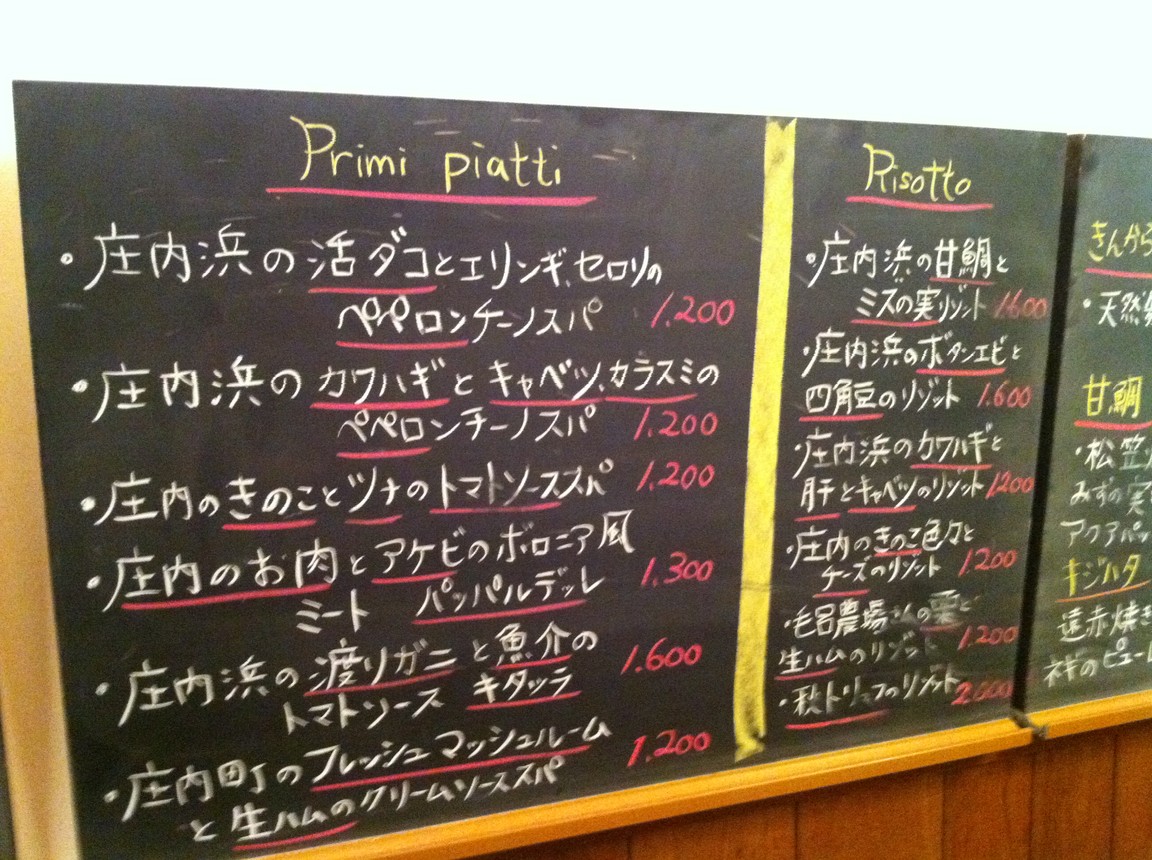 Primi piatti
・庄内浜の活ダコとエリンギ、セロリの
ペペロンチーノスパ 1.200
・庄内浜のカワハギとキャベツ、カラスミの
ペペロンチーノスパ 1.200
・庄内のきのことツナのトマトソーススパ 1.200
・庄内のお肉とアケビのボロニア風
ミート パッパルデッレ 1.300
・庄内浜の渡リガニと魚介の
トマトソース キタッラ 1.600
・庄内町のフレッシュマッシュルーム
と生ハムのクリームソーススパ 1.200
Risotto
・庄内浜の甘鯛と
ミズの実リゾット 1.600
・庄内浜のボタンエビと
四角豆のリゾット 1.600
・庄内浜のカワハギと
肝とキャベツのリゾット 1200
・庄内のきのこ色々と
チーズのリゾット 1.200
・毛呂農場さんの栗と
生ハムのリゾット 1.200
・秋トリュフのリゾット 2.000
きんから
・天然
甘鯛
・松笠
みずの実
アクアパッ
キジハタ
遠赤焼き
ネギのピュー